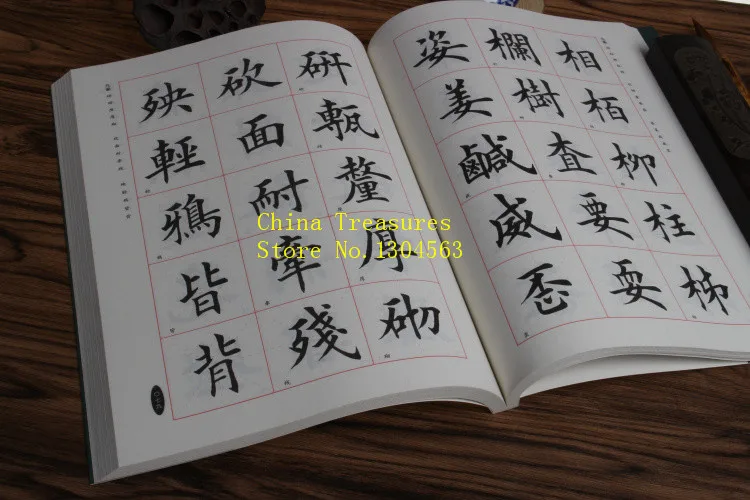 相栢柳柱柿
欄樹査要耍
姿姜鹹威歪
研甎釐厚砌
砍面耐牽殘
殃輕鴉皆背
China Treasures
Store No.1304563